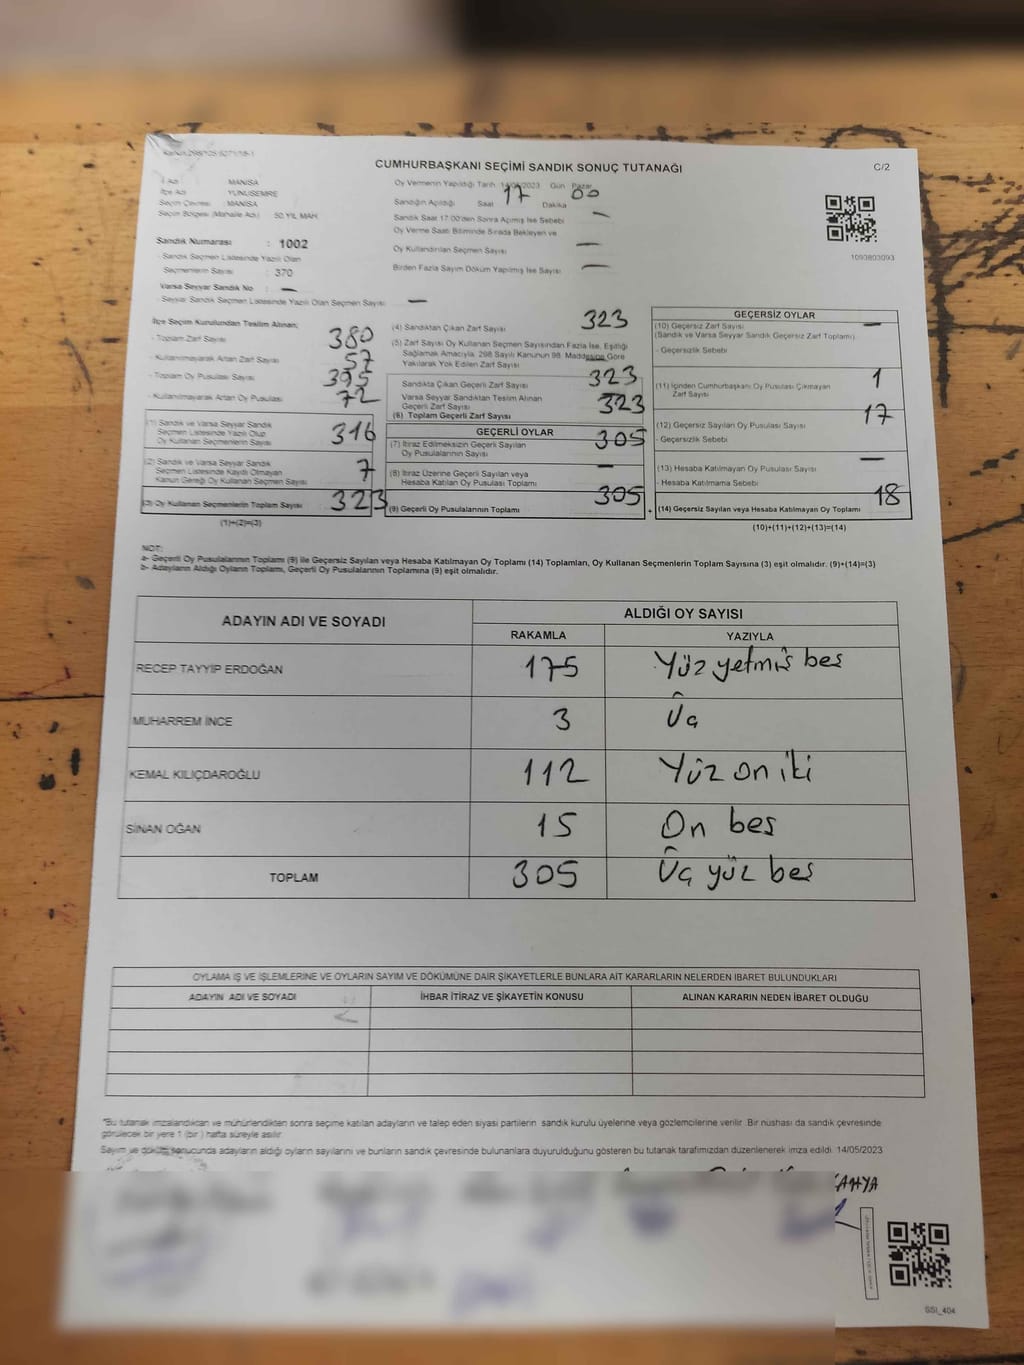 CUMHURBAŞKANI SEÇİMİ SANDIK SONUÇ TUTANAĞI
C/2
İl Adı MANİSA
İlçe Adı YUNUSEMRE
Seçim Çevresi : MANİSA
Seçim Bölgesi (Mahalle Adı) : 50.YIL MAH.
Sandık Numarası : 1002
- Sandık Seçmen Listesinde Yazılı Olan
Seçmenlerin Sayısı : 370
Varsa Seyyar Sandık No : —
- Seyyar Sandık Seçmen Listesinde Yazılı Olan Seçmen Sayısı —
Oy Vermenin Yapıldığı Tarih 14/05/2023 Gün Pazar
Sandığın Açıldığı Saat 17 Dakika 00
Sandık Saat 17:00'den Sonra Açılmış İse Sebebi —
Oy Verme Saati Bitiminde Sırada Bekleyen ve
Oy Kullandırılan Seçmen Sayısı —
Birden Fazla Sayım Döküm Yapılmış İse Sayısı —
1093803093
İlçe Seçim Kurulundan Teslim Alınan;
- Toplam Zarf Sayısı 380
- Kullanılmayarak Artan Zarf Sayısı 57
- Toplam Oy Pusulası Sayısı 395
- Kullanılmayarak Artan Oy Pusulası 72
(1) Sandık ve Varsa Seyyar Sandık
Seçmen Listesinde Yazılı Olup
Oy Kullanan Seçmenlerin Sayısı 316
(2) Sandık ve Varsa Seyyar Sandık
Seçmen Listesinde Kayıtlı Olmayan
Kanun Gereği Oy Kullanan Seçmen Sayısı 7
(3) Oy Kullanan Seçmenlerin Toplam Sayısı 323
(1)+(2)=(3)
(4) Sandıktan Çıkan Zarf Sayısı 323
(5) Zarf Sayısı Oy Kullanan Seçmen Sayısından Fazla İse, Eşitliği
Sağlamak Amacıyla, 298 Sayılı Kanunun 98. Maddesine Göre
Yakılarak Yok Edilen Zarf Sayısı —
Sandıkta Çıkan Geçerli Zarf Sayısı 323
Varsa Seyyar Sandıktan Teslim Alınan
Geçerli Zarf Sayısı
(6) Toplam Geçerli Zarf Sayısı 323
GEÇERLİ OYLAR
(7) İtiraz Edilmeksizin Geçerli Sayılan
Oy Pusulalarının Sayısı 305
(8) İtiraz Üzerine Geçerli Sayılan veya
Hesaba Katılan Oy Pusulası Toplamı —
(9) Geçerli Oy Pusulalarının Toplamı 305
GEÇERSİZ OYLAR
(10) Geçersiz Zarf Sayısı —
(Sandık ve Varsa Seyyar Sandık Geçersiz Zarf Toplamı)
- Geçersizlik Sebebi
(11) İçinden Cumhurbaşkanı Oy Pusulası Çıkmayan
Zarf Sayısı 1
(12) Geçersiz Sayılan Oy Pusulası Sayısı 17
- Geçersizlik Sebebi
(13) Hesaba Katılmayan Oy Pusulası Sayısı —
- Hesaba Katılmama Sebebi
+ (14) Geçersiz Sayılan veya Hesaba Katılmayan Oy Toplamı 18
(10)+(11)+(12)+(13)=(14)
NOT:
a- Geçerli Oy Pusulalarının Toplamı (9) ile Geçersiz Sayılan veya Hesaba Katılmayan Oy Toplamı (14) Toplamları, Oy Kullanan Seçmenlerin Toplam Sayısına (3) eşit olmalıdır. (9)+(14)=(3)
b- Adayların Aldığı Oyların Toplamı, Geçerli Oy Pusulalarının Toplamına (9) eşit olmalıdır.
ADAYIN ADI VE SOYADI
ALDIĞI OY SAYISI
RAKAMLA YAZIYLA
RECEP TAYYİP ERDOĞAN 175 Yüz yetmiş beş
MUHARREM İNCE 3 Üç
KEMAL KILIÇDAROĞLU 112 Yüz on iki
SİNAN OĞAN 15 On beş
TOPLAM 305 Üç yüz beş
OYLAMA İŞ VE İŞLEMLERİNE VE OYLARIN SAYIM VE DÖKÜMÜNE DAİR ŞİKAYETLERLE BUNLARA AİT KARARLARIN NELERDEN İBARET BULUNDUKLARI
ADAYIN ADI VE SOYADI İHBAR İTİRAZ VE ŞİKAYETİN KONUSU ALINAN KARARIN NEDEN İBARET OLDUĞU
"Bu tutanak imzalandıktan ve mühürlendikten sonra seçime katılan adayların ve talep eden siyasi partilerin sandık kurulu üyelerine veya gözlemcilerine verilir. Bir nüshası da sandık çevresinde
görülecek bir yere 1 (bir ) hafta süreyle asılır.
Sayım ve döküm sonucunda adayların aldığı oyların sayılarını ve bunların sandık çevresinde bulunanlara duyurulduğunu gösteren bu tutanak tarafımızdan düzenlenerek imza edildi. 14/05/2023
SSI_404